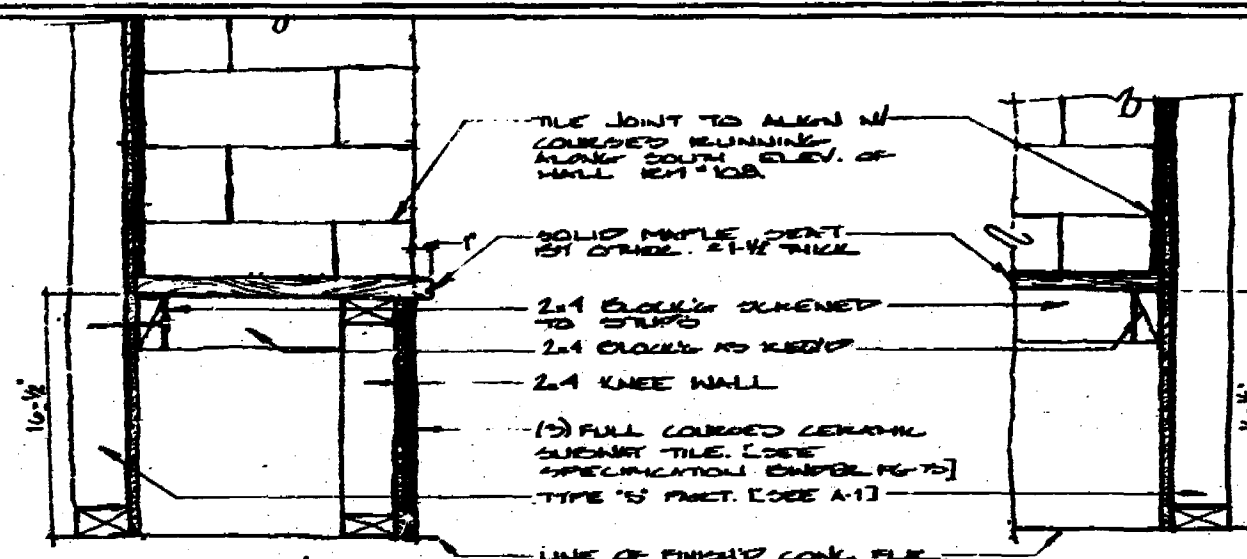 TILE JOINT TO ALIGN W/
COURSES RUNNING
ALONG SOUTH ELEV. OF
WALL RM #108.
1"
SOLID MAPLE SEAT
BY OTHER. 1-1/2" THICK
2x4 BLOCK'G SCREWED
TO STUDS
2x4 BLOCK'G AS REQ'D
2x4 KNEE WALL
16-1/2"
(3) FULL COURSED CERAMIC
SUBWAY TILE. [SEE
SPECIFICATION BINDER PG 75]
TYPE "S" PART. [SEE A-1]
LINE OF FINISH'D CONC. FLR